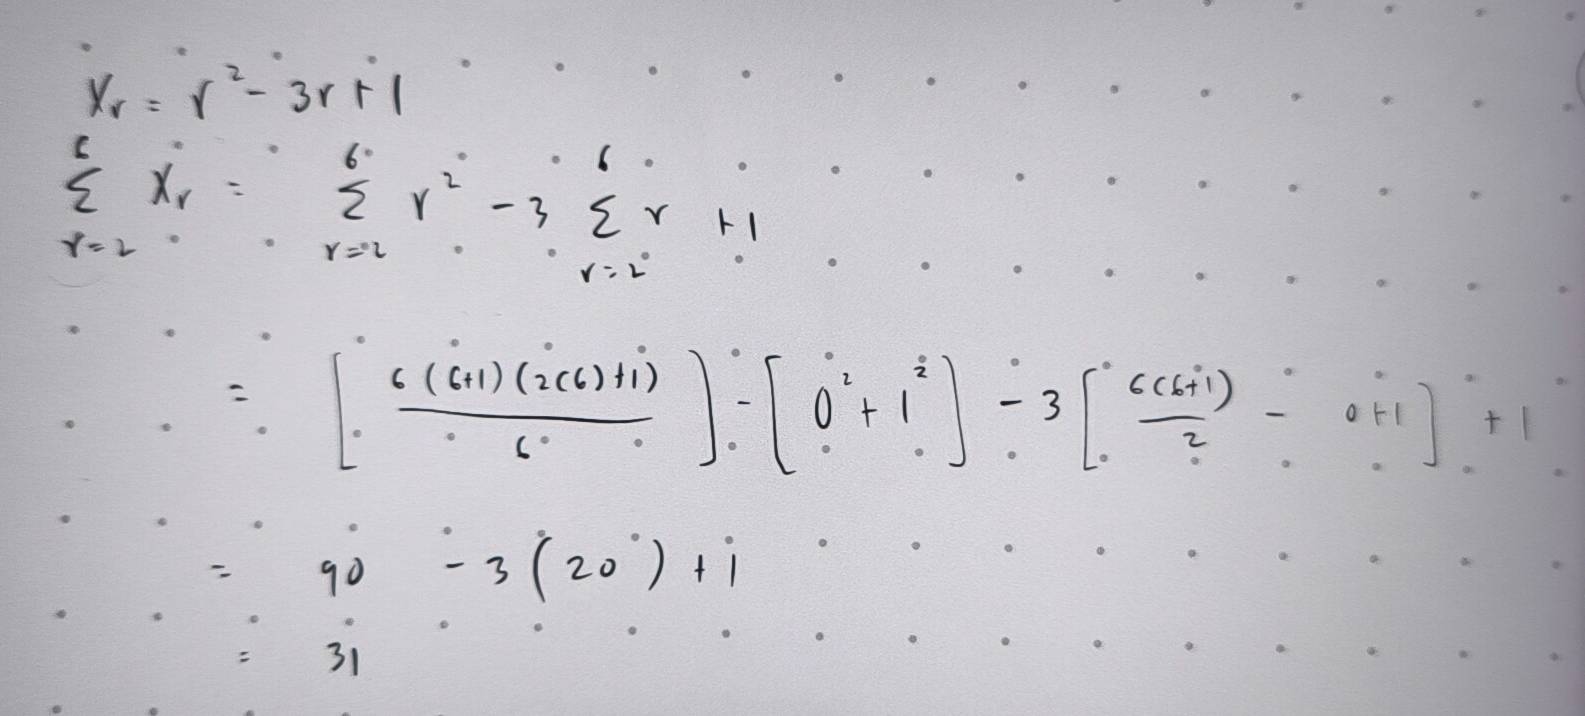 Xr = r² - 3r + 1
6 Σ r=2 Xr = 6 Σ r=2 r² - 3 6 Σ r=2 r + 1
= [ 6(6+1)(2(6)+1) / 6 ] - [ 0² + 1² ] - 3 [ 6(6+1) / 2 - 0+1 ] + 1
= 90 - 3(20) + 1
= 31